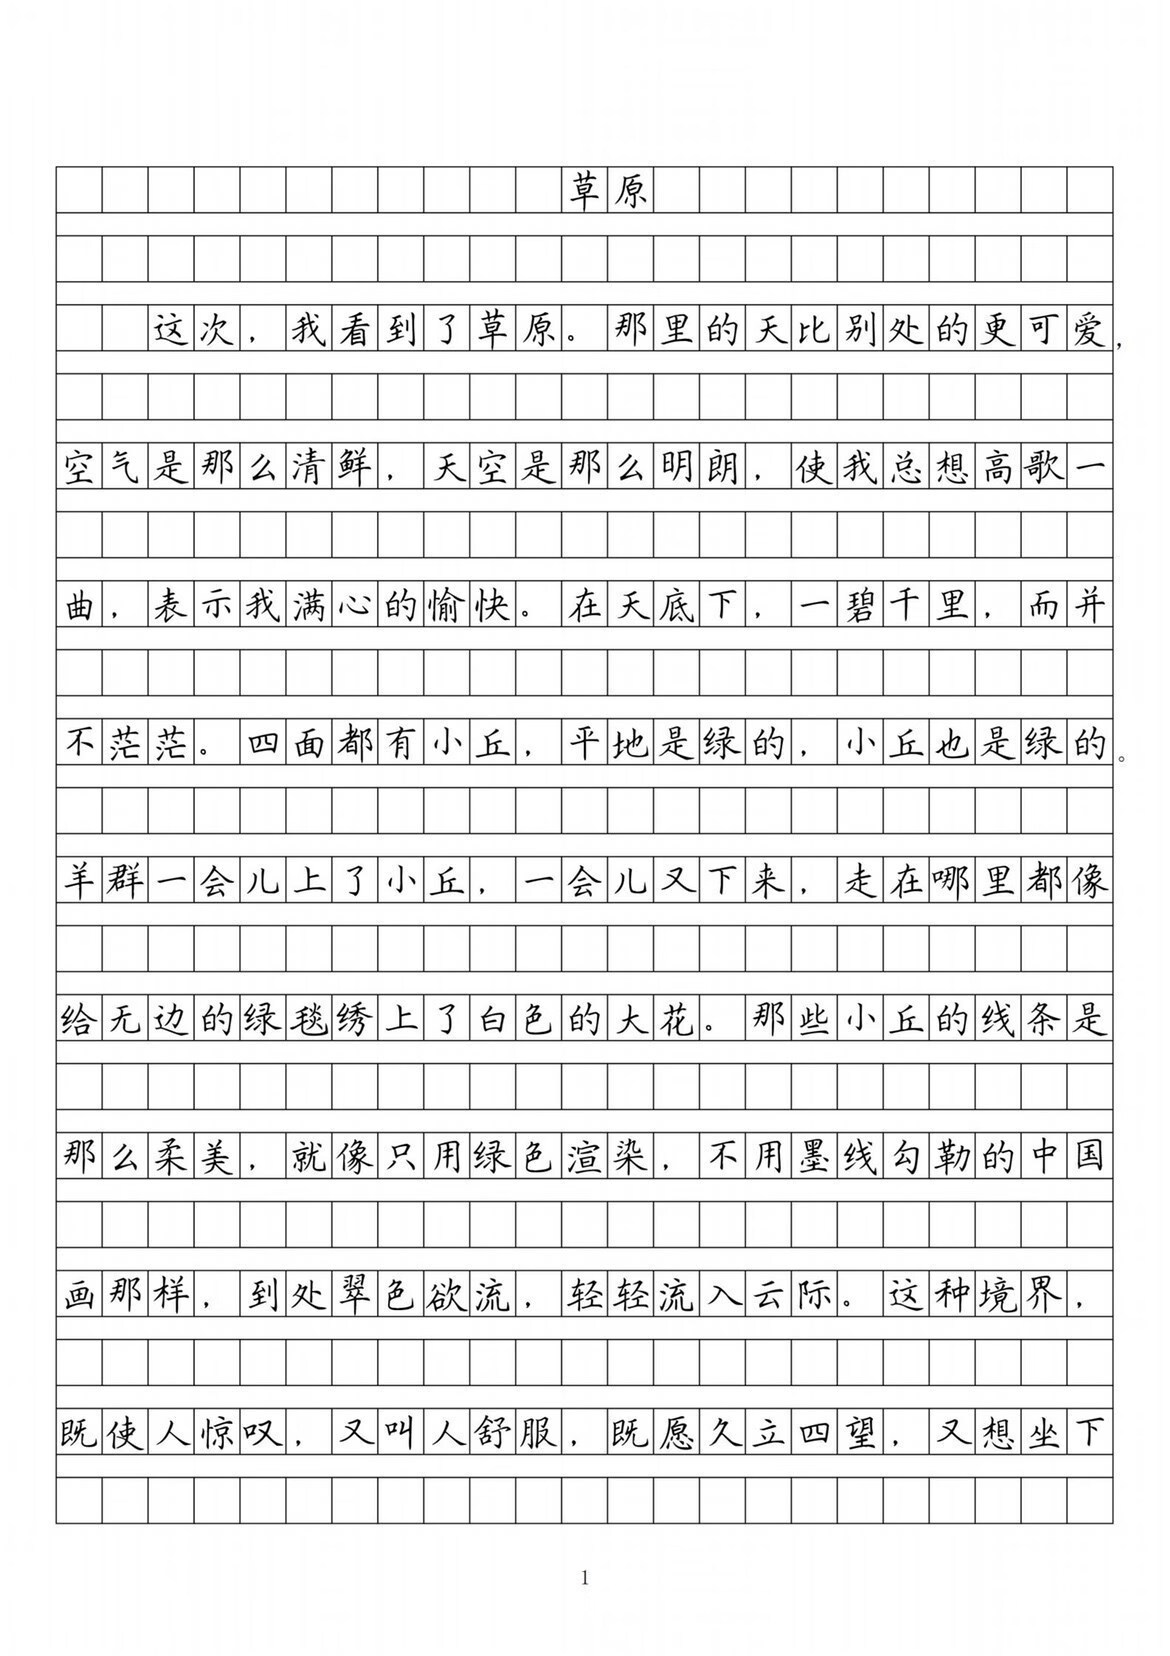 草原
这次，我看到了草原。那里的天比别处的更可爱，
空气是那么清鲜，天空是那么明朗，使我总想高歌一
曲，表示我满心的愉快。在天底下，一碧千里，而并
不茫茫。四面都有小丘，平地是绿的，小丘也是绿的。
羊群一会儿上了小丘，一会儿又下来，走在哪里都像
给无边的绿毯绣上了白色的大花。那些小丘的线条是
那么柔美，就像只用绿色渲染，不用墨线勾勒的中国
画那样，到处翠色欲流，轻轻流入云际。这种境界，
既使人惊叹，又叫人舒服，既愿久立四望，又想坐下
1